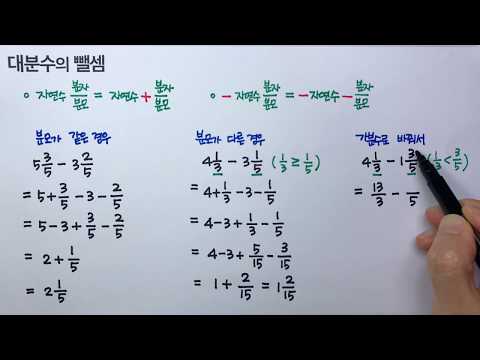 대분수의 뺄셈
∘ 자연수 분자/분모 = 자연수 + 분자/분모
∘ - 자연수 분자/분모 = - 자연수 - 분자/분모
분모가 같은 경우
5 3/5 - 3 2/5
= 5 + 3/5 - 3 - 2/5
= 5 - 3 + 3/5 - 2/5
= 2 + 1/5
= 2 1/5
분모가 다른 경우
4 1/3 - 3 1/5 ( 1/3 ≥ 1/5 )
= 4 + 1/3 - 3 - 1/5
= 4 - 3 + 1/3 - 1/5
= 4 - 3 + 5/15 - 3/15
= 1 + 2/15 = 1 2/15
가분수로 바꿔서
4 1/3 - 1 3/5 ( 1/3 < 3/5 )
= 13/3 - /5